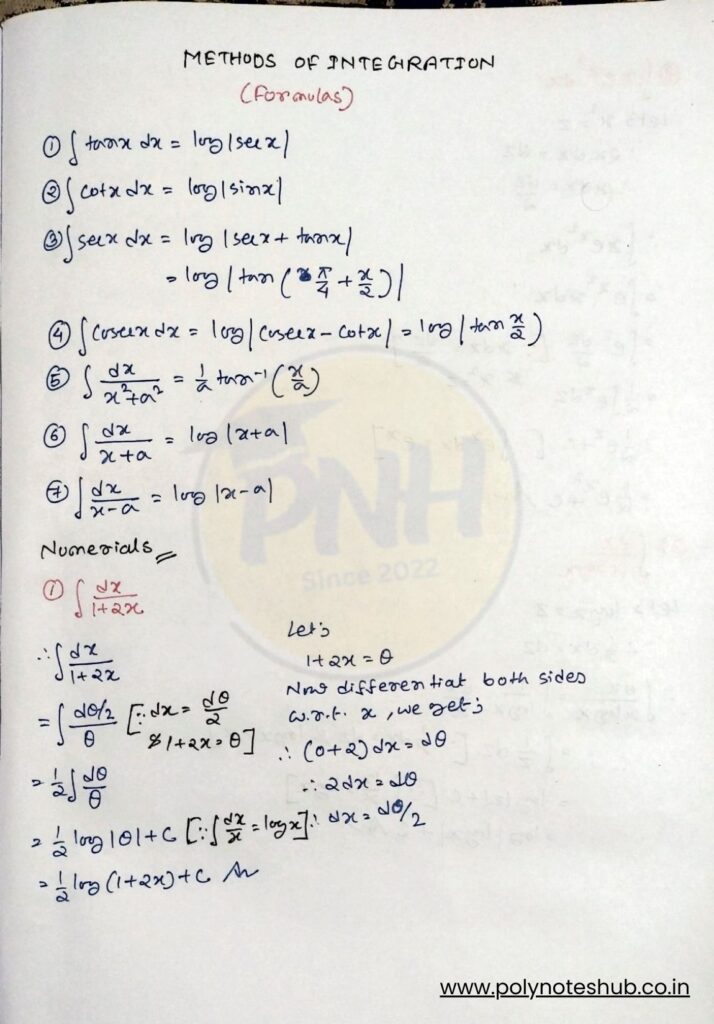 METHODS OF INTEGRATION
(Formulas)
① ∫ tanx dx = log |secx|
② ∫ cotx dx = log |sinx|
③ ∫ secx dx = log |secx + tanx|
= log | tan ( π/4 + x/2 ) |
④ ∫ cosecx dx = log | cosecx - cotx | = log | tan x/2 )
⑤ ∫ dx/(x²+a²) = 1/a tan⁻¹ (x/a)
⑥ ∫ dx/(x+a) = log |x+a|
⑦ ∫ dx/(x-a) = log |x-a|
PNH
Since 2022
Numericals
① ∫ dx/(1+2x)
∴ ∫ dx/(1+2x)
= ∫ (dθ/2)/θ [∵ dx = dθ/2
& 1+2x = θ]
= 1/2 ∫ dθ/θ
= 1/2 log |θ| + C [∵ ∫ dx/x = log x]
= 1/2 log (1+2x) + C
Let's
1+2x = θ
Now differentiat both sides
w.r.t. x, we get;
∴ (0+2) dx = dθ
∴ 2dx = dθ
∴ dx = dθ/2
www.polynoteshub.co.in